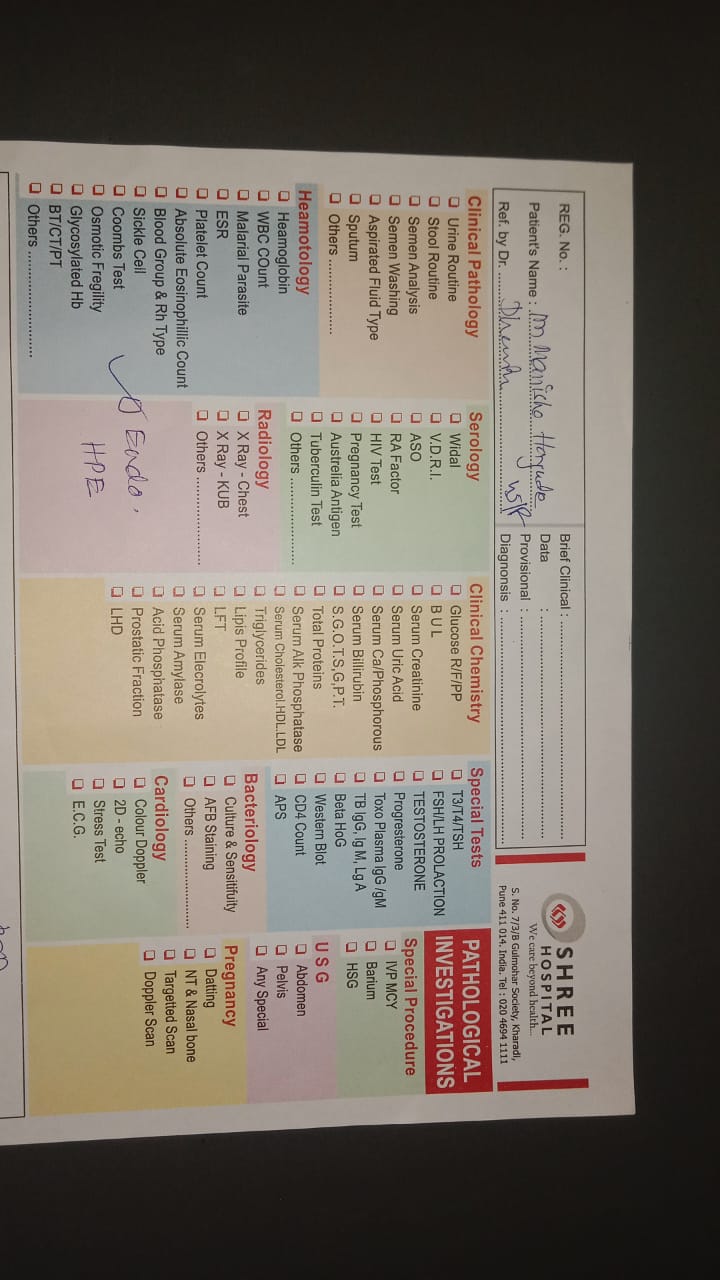 SHREE
HOSPITAL
We care beyond health.
S. No. 7/3/B Gulmohar Society, Kharadi,
Pune 411 014. India. Tel : 020 4694 1111
REG. No. :
Patient's Name :
Ref. by Dr.
Brief Clinical :
Data :
Provisional :
Diagnonsis :
PATHOLOGICAL
INVESTIGATIONS
Clinical Pathology
Urine Routine
Stool Routine
Semen Analysis
Semen Washing
Aspirated Fluid Type
Sputum
Others
Heamotology
Heamoglobin
WBC COunt
Malarial Parasite
ESR
Platelet Count
Absolute Eosinophillic Count
Blood Group & Rh Type
Sickle Cell
Coombs Test
Osmotic Fregility
Glycosylated Hb
BT/CT/PT
Others
Serology
Widal
V.D.R.I.
ASO
RA Factor
HIV Test
Pregnancy Test
Austrelia Antigen
Tuberculin Test
Others
Radiology
X Ray - Chest
X Ray - KUB
Others
Endo.
HPE
Clinical Chemistry
Glucose R/F/PP
B U L
Serum Creatinine
Serum Uric Acid
Serum Ca/Phosphorous
Serum Billirubin
S.G.O.T.S,G,P.T.
Total Proteins
Serum Alk Phosphatase
Serum Cholesterol.HDL.LDL
Triglycerides
Lipis Profile
LFT
Serum Elecrolytes
Serum Amylase
Acid Phosphatase
Prostatic Fraction
LHD
Special Tests
T3/T4/TSH
FSH/LH PROLACTION
TESTOSTERONE
Progresterone
Toxo Plasma IgG /gM
TB IgG, Ig M, Lg A
Beta HoG
Western Blot
CD4 Count
APS
Bacteriology
Culture & Sensitifuity
AFB Staining
Others
Cardiology
Colour Doppler
2D - echo
Stress Test
E.C.G.
Special Procedure
IVP MCY
Barium
HSG
U S G
Abdomen
Pelvis
Any Special
Pregnancy
Datting
NT & Nasal bone
Targetted Scan
Doppler Scan